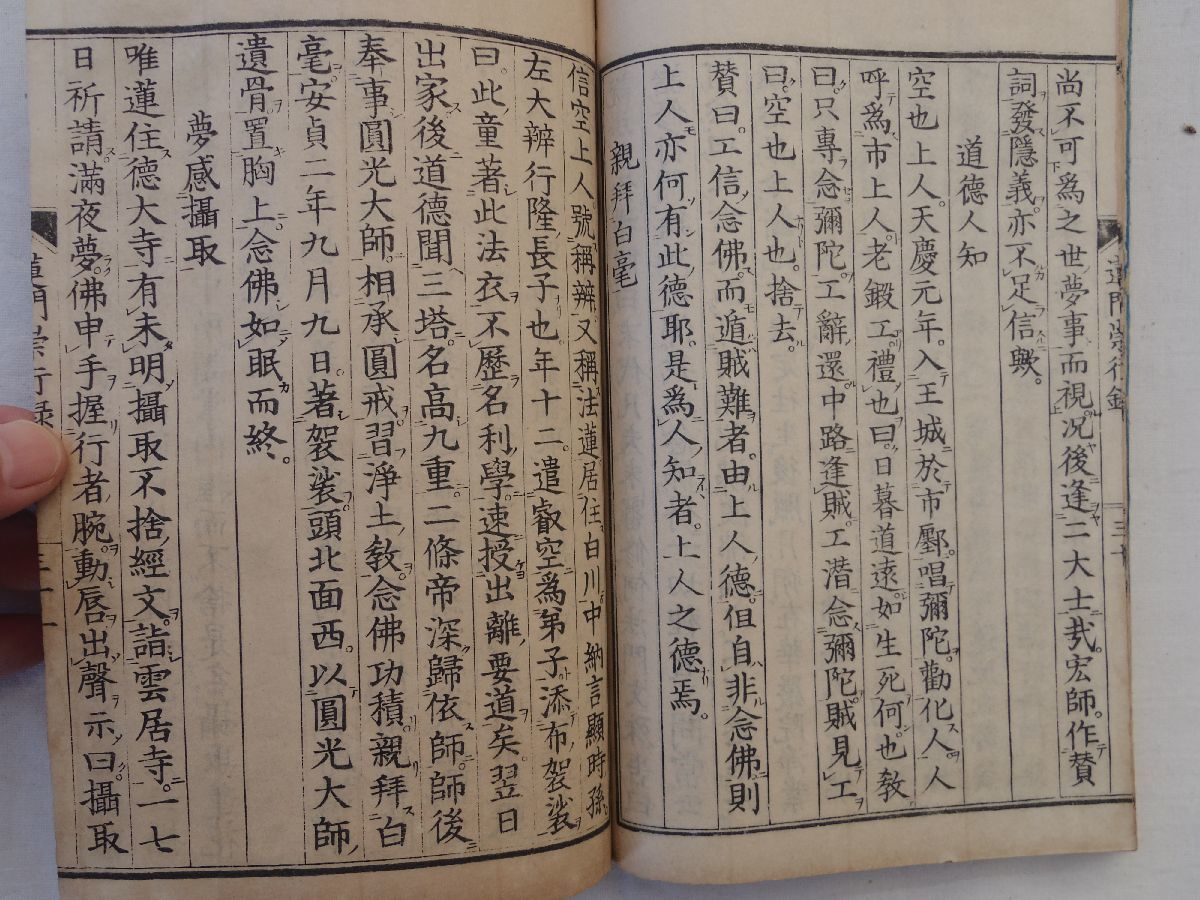 尚不可爲之世夢事而視況後逢二大士哉宏師作賛
詞發隱義亦不足信歟。
道德人知
空也上人。天慶元年。入王城於市鄽。唱彌陀。勸化人。人
呼爲市上人。老鍛工。禮也曰。日暮道遠。如生死何。也敎
曰。只專念彌陀。工辭還中路逢賊。工潛念彌陀。賊見工
曰。空也上人也。捨去。
賛曰。工信念佛。而遁賊難者。由上人德。但自非念佛。則
上人亦何有此德耶。是爲人知者。上人之德焉。
親拜白毫
信空上人號稱辨又稱法蓮居住白川中納言顯時孫
左大辨行隆長子也。年十二。遣叡空爲弟子。添布袈裟
曰。此童著此法衣。不歷名利學。速授出離要道矣。翌日
出家後道德聞三塔。名高九重。二條帝深歸依師。師後
奉事圓光大師。相承圓戒。習淨土敎念佛功積。親拜白
毫。安貞二年九月九日。著袈裟。頭北面西。以圓光大師
遺骨。置胸上。念佛如眠而終。
夢感攝取
唯蓮住德大寺。有未明攝取不捨經文。詣雲居寺。一七
日祈請。滿夜夢。佛申手握行者腕。動唇出聲示曰攝取
蓮門崇行錄
蓮門崇行錄